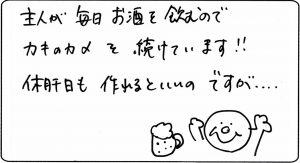 主人が毎日お酒を飲むので
カキのカメを続けています!!
休肝日も作れるといいのですが....